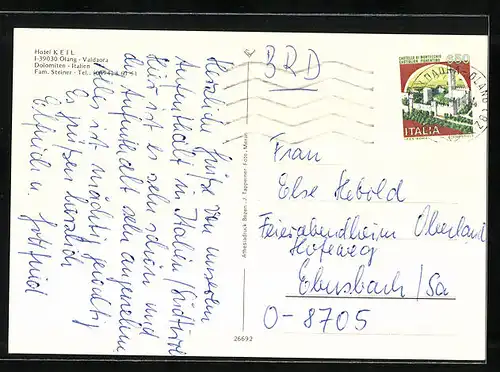 Hotel KEIL
I-39030 Olang - Valdaora
Dolomiten - Italien
Fam. Steiner - Tel.
Herzliche Grüße von unserem
Aufenthalt in Italien/Südtirol
Hier ist es sehr schön und
der Aufenthalt sehr angenehm
alles ist mächtig
Es grüßen herzlich
Elfriede u. Gottfried
Athesiadruck Bozen - J. Tappeiner Foto - Meran
26692
BRD
CASTELLO DI MONTECCHIO
CASTIGLION FIORENTINO
650
ITALIA
Frau
Else Hebold
Feierabendheim Oberland
Hofeweg
Ebersbach/Sa
O-8705